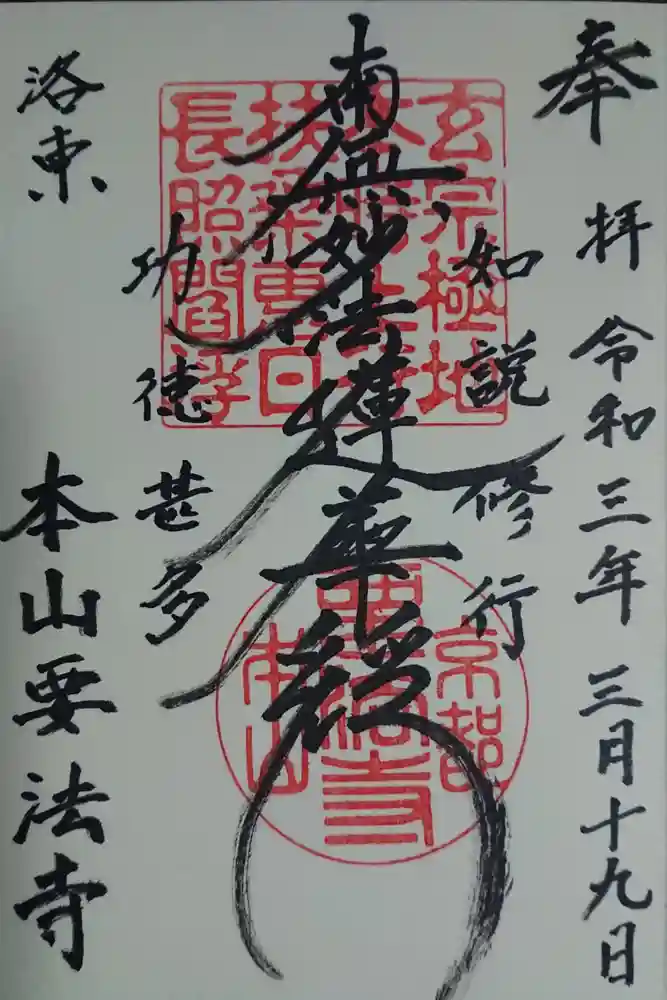 奉拝 令和三年三月十九日
如説修行
南無妙法蓮華経
功徳甚多
洛東 本山要法寺
玄宗極地
長照閻
京都
要法寺
本山